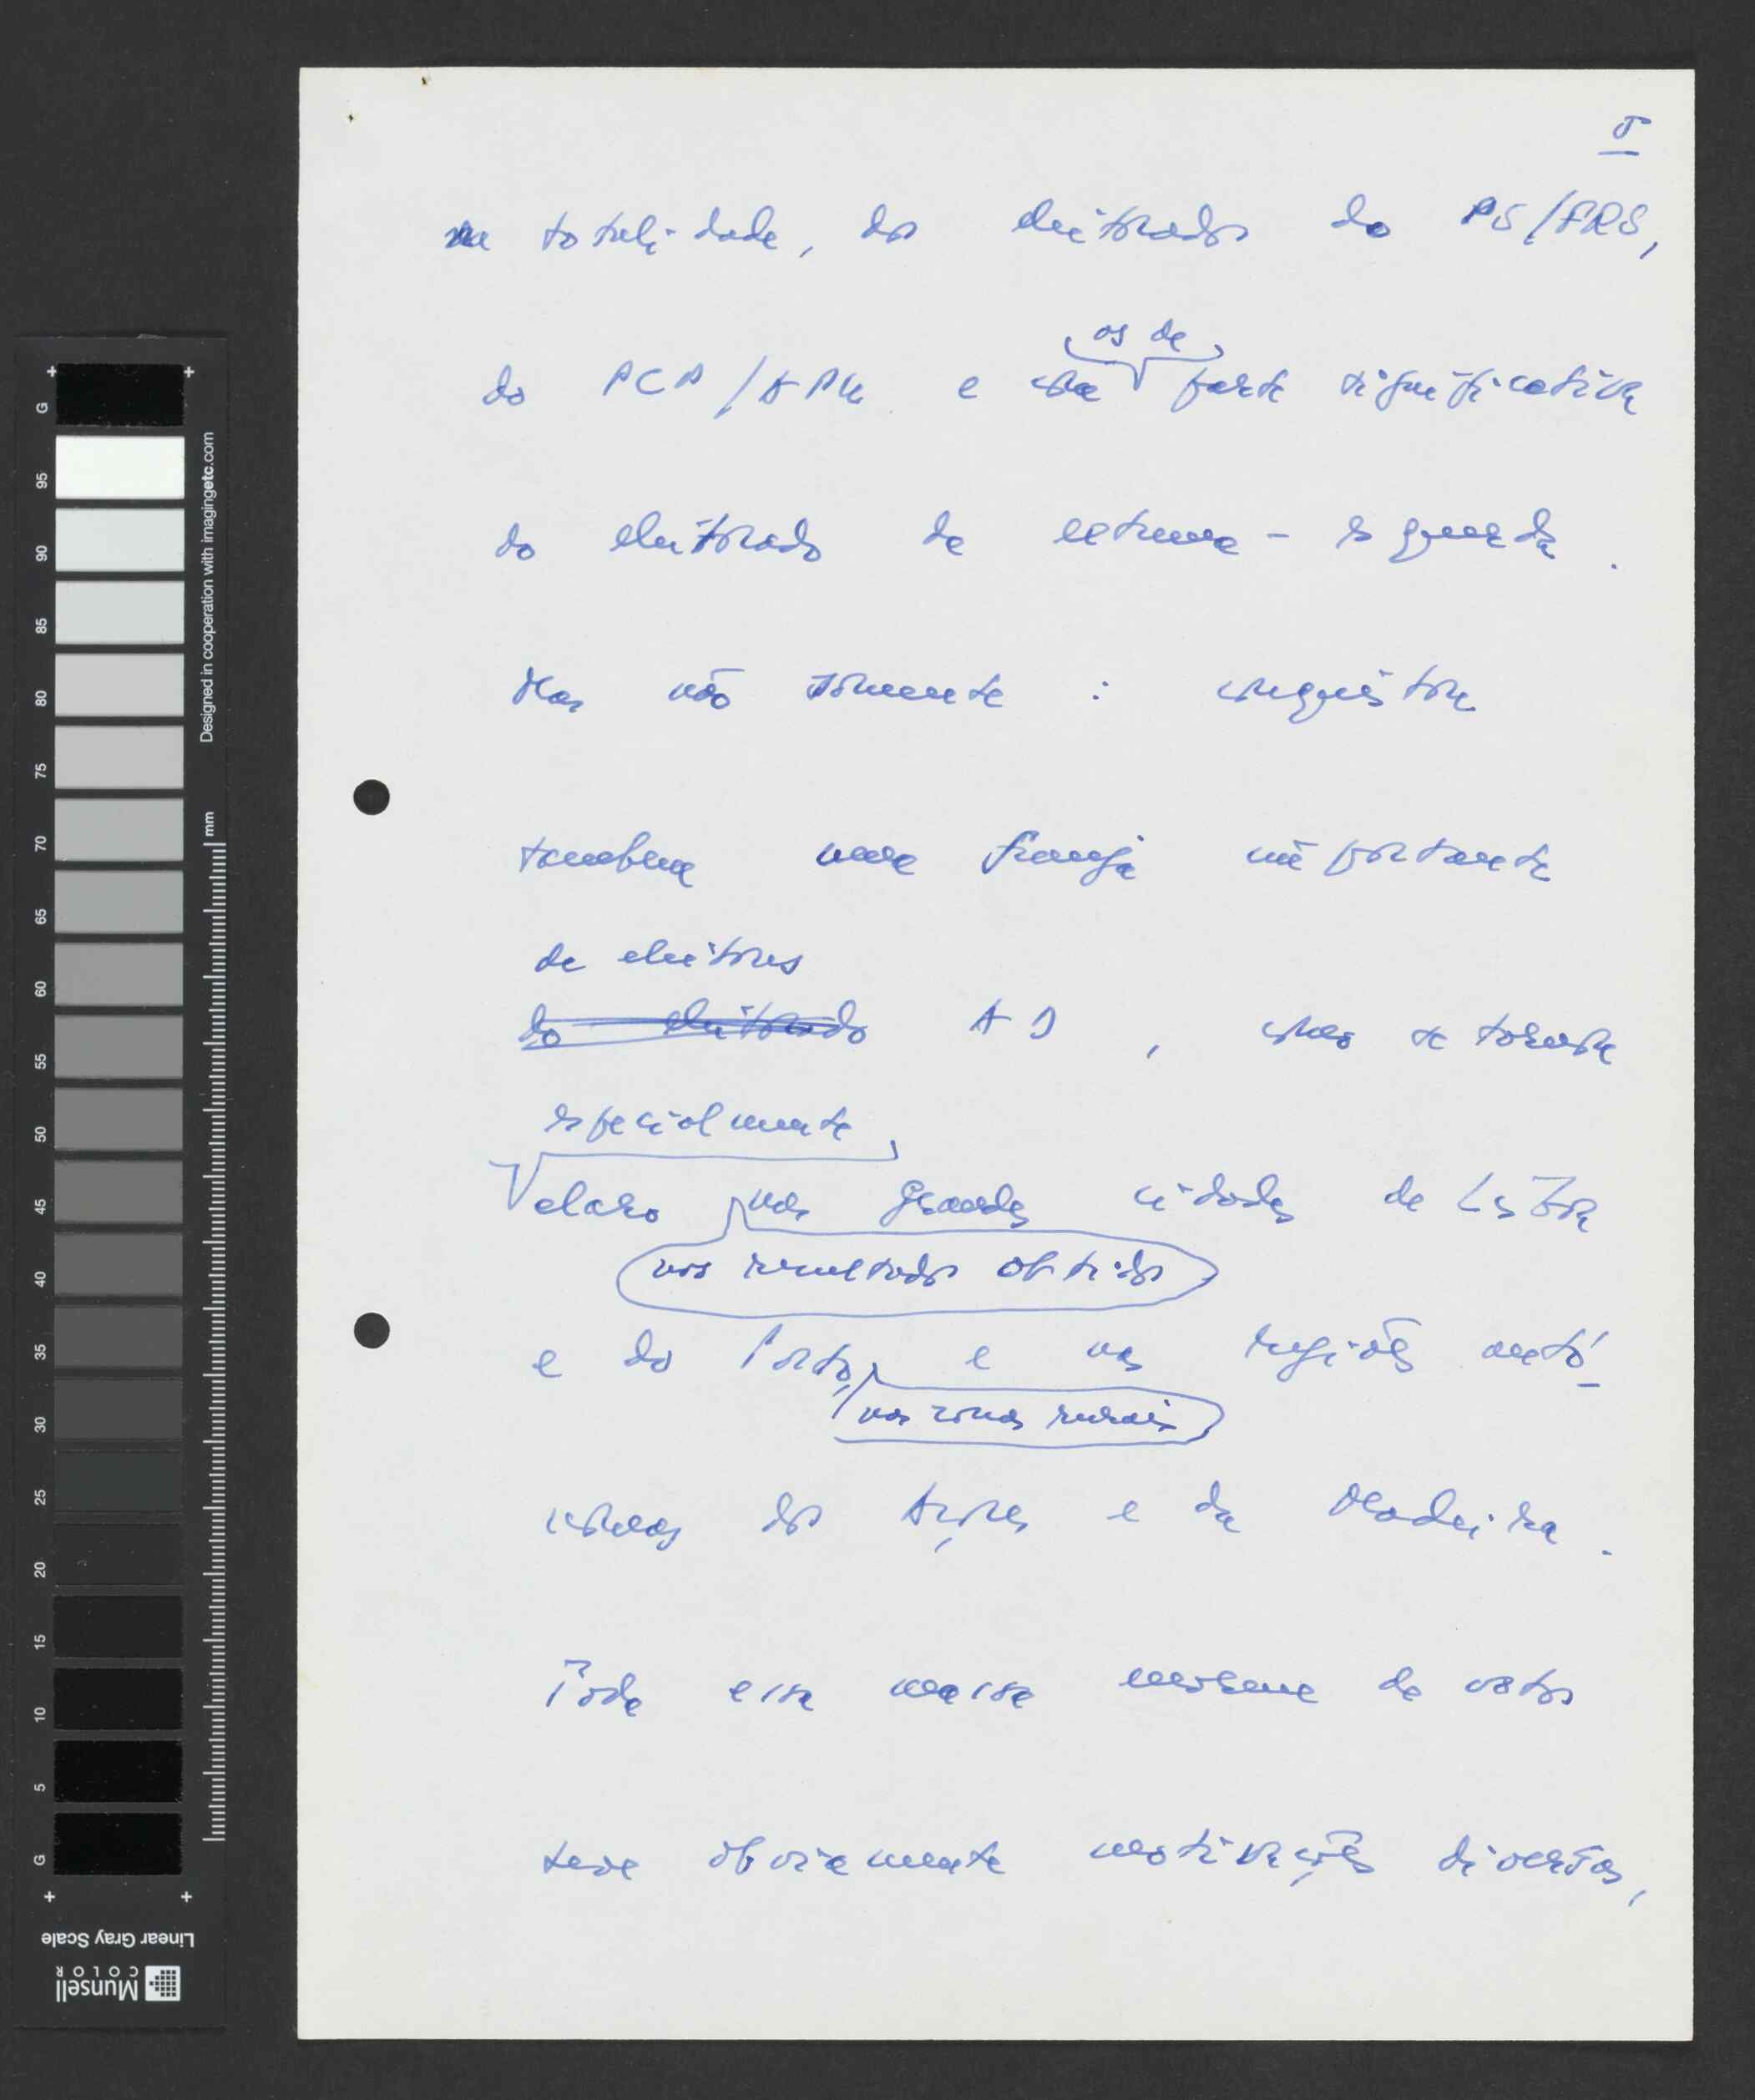 5
na totalidade, dos eleitorados do PS/FRS,
os de
do PCP/APU e uma parte significativa
do eleitorado de extrema-esquerda.
Mas não somente : conquistou
também uma franja importante
de eleitores
do eleitorado AD, como se tornou
especialmente
claro nas grandes cidades de Lisboa
nos resultados obtidos
e do Porto, e nas regiões autó-
nas zonas rurais
nomas dos Açores e da Madeira.
Toda essa massa enorme de votos
teve obviamente motivações diversas,
G
95
90
85
80
75
70
65
60
55
50
45
40
35
30
25
20
15
10
5
G
Designed in cooperation with imagingetc.com
mm
Linear Gray Scale
Munsell
COLOR